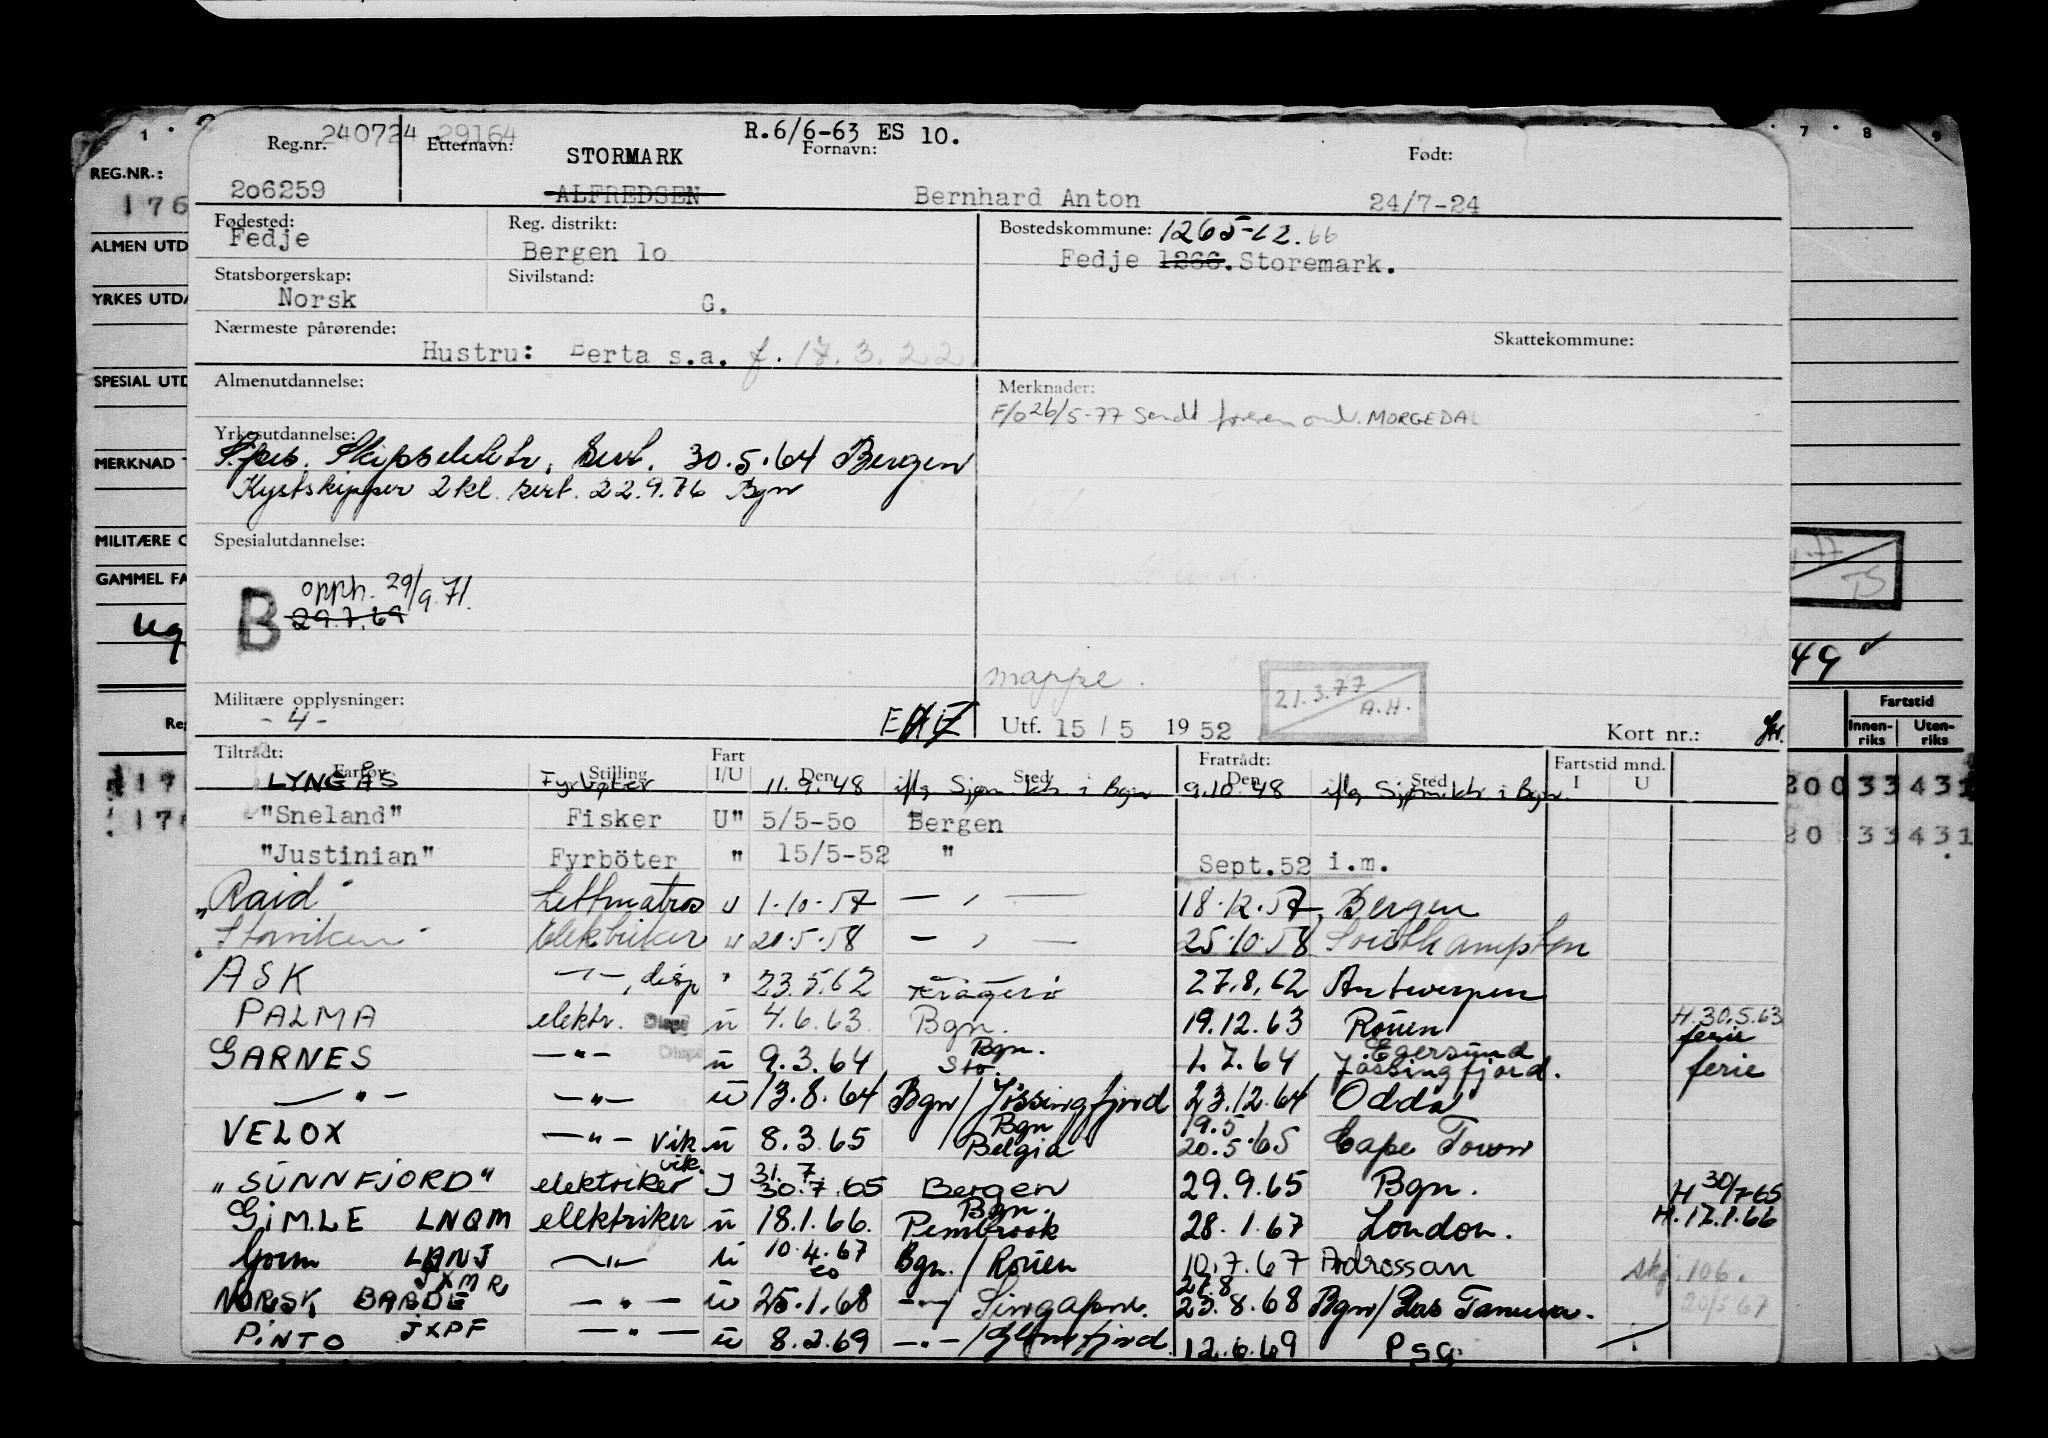 240724 29164 R.6/6-63 ES 10.
Reg.nr. Etternavn: Fornavn: Født:
STORMARK
206259 ALFREDSEN Bernhard Anton 24/7-24
Fødested: Reg. distrikt: Bostedskommune: 1265-12.66
Fedje Bergen 1o Fedje 1266. Storemark.
Statsborgerskap: Sivilstand:
Norsk G.
Nærmeste pårørende: Skattekommune:
Hustru: Berta s.a. f. 17.3.22
Almenutdannelse: Merknader:
F/o 26/5-77 Sendt MORGEDAL
Yrkesutdannelse:
Skipselektr. Sert. 30.5.64 Bergen
Kystskipper 2kl. sert. 22.9.76 Bgn
Spesialutdannelse:
opph. 29/9.71.
B 29.7.69
mappe. 21.3.77 A.H.
Militære opplysninger:
- 4 - Utf. 15 / 5 19 52 Kort nr.:
Tiltrådt: Fart Fratrådt: Fartstid mnd.
Fartøy Stilling I/U Den Sted Den Sted I U
LYNGÅS Fyrbøter 11.9.48 iflg Sjøm ktr i Bgn 9.10.48 iflg Sjømktr. i Bgn.
"Sneland" Fisker U" 5/5-50 Bergen
"Justinian" Fyrböter " 15/5-52 " Sept.52 i.m.
"Raid" Lettmatros u 1.10.57 — , — 18.12.57, Bergen
"Storviken" elektriker u 20.5.58 — , — 25.10.58 Southampton
ASK —"—, disp " 23.5.62 Kragerø 27.8.62 Antwerpen
PALMA elektr. Disp u 4.6.63 Bgn. 19.12.63 Rouen H.30.5.63 ferie
GARNES —"— Disp u 9.3.64 Bgn. Sto. 1.7.64 Egersund Jøssingfjord. ferie
—"— —"— u 13.8.64 Bgn/Jøssingfjord 23.12.64 Odda
VELOX —"— vik u 8.3.65 Bgn Belgia 19.5 20.5.65 Cape Town
"SUNNFJORD" elektriker vik. I 31.7 30.7.65 Bergen 29.9.65 Bgn. H 30/7-65
GIMLE LNQM elektriker u 18.1.66. Bgn. Pembrook 28.1.67 London. H.17.1.66
Gorm LANJ —"— u 10.4.67 Bgn./Rouen 10.7.67 Adrossan skj. 106. 20/5 67
NORSK BARDE JXMR —"— u 25.1.68 —"—/Singapore. 27.8 23.8.68 Bgn/Ras Tanura.
PINTO JXPF —"— u 8.2.69 —"—/Glomfjord 12.6.69 Psg.
1 7 8 9
REG.NR.:
176
ALMEN UTD
YRKES UTDA
SPESIAL UTD
MERKNAD
MILITÆRE
GAMMEL FA
49
Reg
Fartstid
Innen-riks Uten-riks
17 200 33 431
17 20 33 431